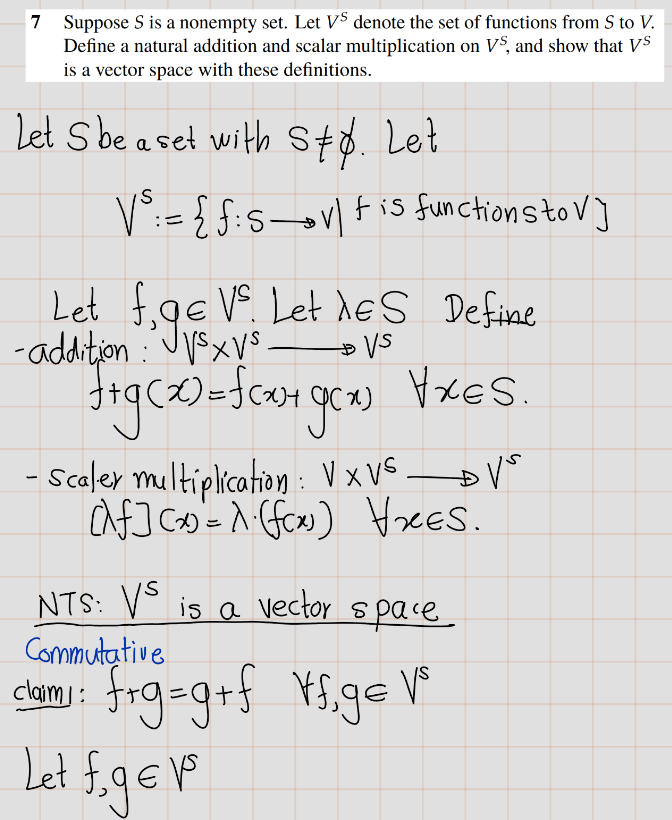 7 Suppose S is a nonempty set. Let V^S denote the set of functions from S to V.
Define a natural addition and scalar multiplication on V^S, and show that V^S
is a vector space with these definitions.
Let S be a set with S ≠ ∅. Let
V^S := { f: S → V | f is functions to V }
Let f, g ∈ V^S. Let λ ∈ S Define
- addition : V^S × V^S → V^S
f+g(x) = f(x) + g(x) ∀x ∈ S.
- Scaler multiplication : V × V^S → V^S
[λf](x) = λ·(f(x)) ∀x ∈ S.
NTS: V^S is a vector space
Commutative
claim 1: f+g = g+f ∀f, g ∈ V^S
Let f, g ∈ V^S